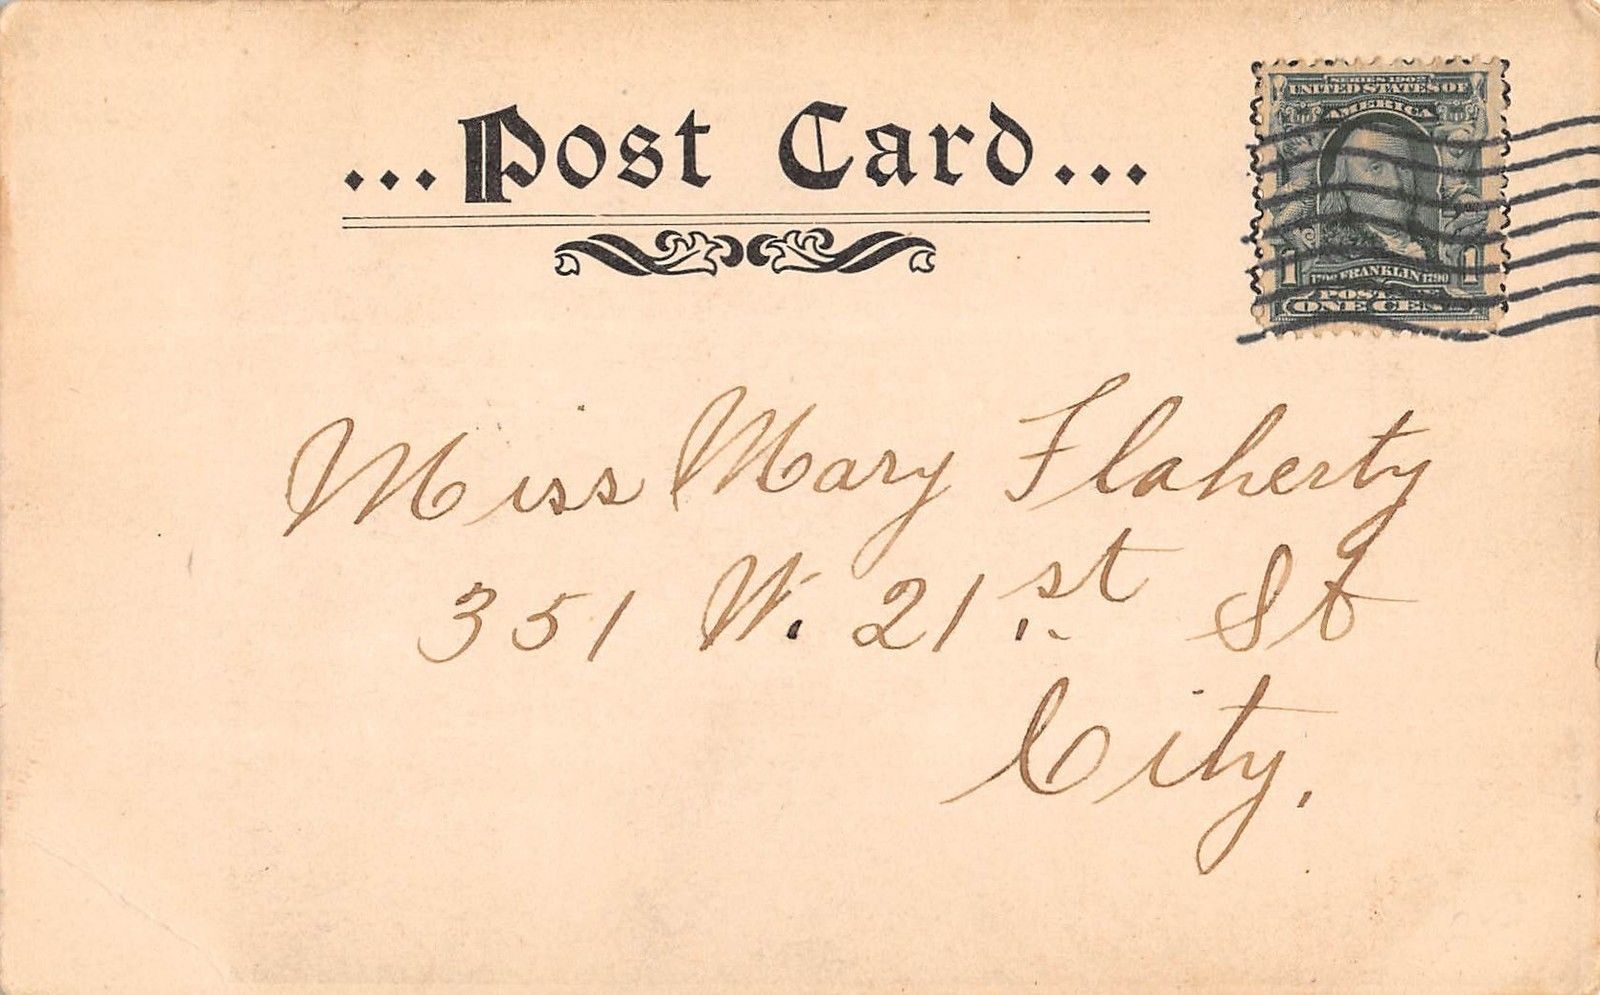 ...Post Card...
SERIES 1902
UNITED STATES OF
AMERICA
1 1706 FRANKLIN 1790 1
POSTAGE
ONE CENT
Miss Mary Flaherty
351 W. 21st St
City.